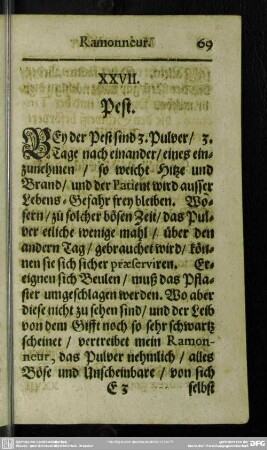 Ramonneur. 69
XXVII.
Pest.
BEy der Pest sind 3. Pulver/ 3.
Tage nach einander/ eines ein-
zunehmen / so weicht Hitze und
Brand/ und der Patient wird ausser
Lebens-Gefahr frey bleiben. Wo-
fern/ zu solcher bösen Zeit/ das Pul-
ver etliche wenige mahl/ über den
andern Tag/ gebrauchet wird/ kön-
nen sie sich sicher præserviren. Er-
eignen sich Beulen/ muß das Pfla-
ster umgeschlagen werden. Wo aber
diese nicht zu sehen sind/ und der Leib
von dem Gifft noch so sehr schwartz
scheinet / vertreibet mein Ramon-
neur, das Pulver nehmlich / alles
Böse und Unscheinbare / von sich
E 3 selbst